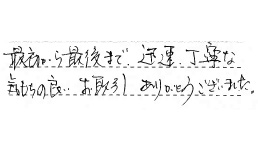 最初から最後まで、迅速、丁寧な
気もちの良い お取引 ありがとうございました。